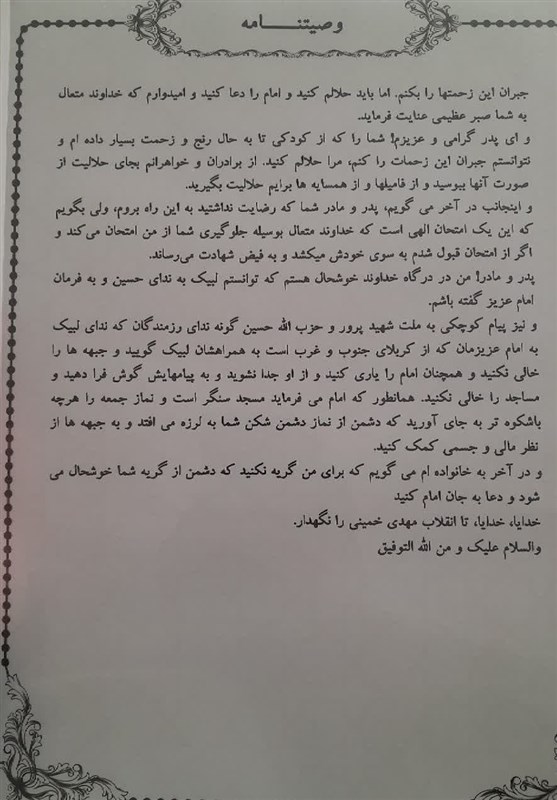 وصیتنـــــامه
جبران این زحمتها را بکنم. اما باید حلالم کنید و امام را دعا کنید و امیدوارم که خداوند متعال
به شما صبر عظیمی عنایت فرماید.
و ای پدر گرامی و عزیزم! شما را که از کودکی تا به حال رنج و زحمت بسیار داده ام و
نتوانستم جبران این زحمات را کنم، مرا حلالم کنید. از برادران و خواهرانم بجای حلالیت از
صورت آنها ببوسید و از فامیلها و از همسایه ها برایم حلالیت بگیرید.
و اینجانب در آخر می گویم، پدر و مادر شما که رضایت نداشتید به این راه بروم، ولی بگویم
که این یک امتحان الهی است که خداوند متعال بوسیله جلوگیری شما از من امتحان می‌کند و
اگر از امتحان قبول شدم به سوی خودش میکشد و به فیض شهادت می‌رساند.
پدر و مادر! من در درگاه خداوند خوشحال هستم که توانستم لبیک به ندای حسین و به فرمان
امام عزیز گفته باشم.
و نیز پیام کوچکی به ملت شهید پرور و حزب الله حسین گونه ندای رزمندگان که ندای لبیک
به امام عزیزمان که از کربلای جنوب و غرب است به همراهشان لبیک گویید و جبهه ها را
خالی نکنید و همچنان امام را یاری کنید و از او جدا نشوید و به پیامهایش گوش فرا دهید و
مساجد را خالی نکنید. همانطور که امام می فرماید مسجد سنگر است و نماز جمعه را هرچه
باشکوه تر به جای آورید که دشمن از نماز دشمن شکن شما به لرزه می افتد و به جبهه ها از
نظر مالی و جسمی کمک کنید.
و در آخر به خانواده ام می گویم که برای من گریه نکنید که دشمن از گریه شما خوشحال می
شود و دعا به جان امام کنید
خدایا، خدایا، تا انقلاب مهدی خمینی را نگهدار.
والسلام علیک و من الله التوفیق